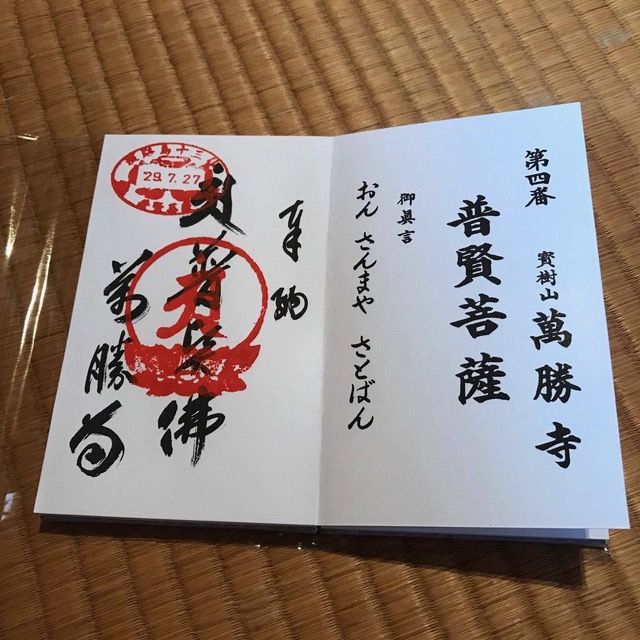 第四番
寳樹山 萬勝寺
普賢菩薩
御真言
おん さんまや さとばん
奉納
普賢佛
萬勝寺
29.7.27